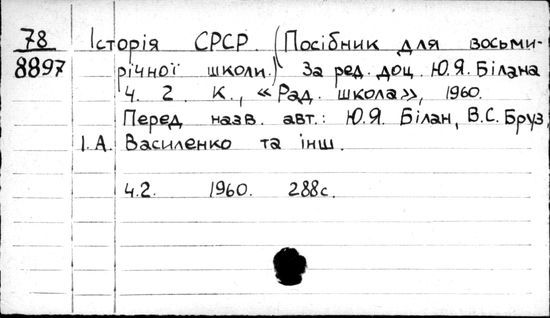 78 Історія СРСР. (Посібник для восьми-
8897 річної школи.) За ред. доц. Ю.Я. Білана
Ч. 2. К., «Рад. школа», 1960.
Перед назв. авт.: Ю.Я. Білан, В.С. Бруз,
І.А. Василенко та інш.
Ч.2. 1960. 288с.